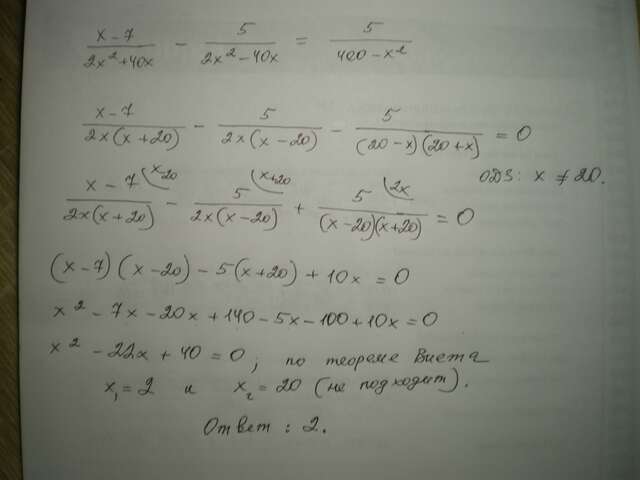 x - 7 / 2x² + 40x - 5 / 2x² - 40x = 5 / 400 - x²
x - 7 / 2x(x + 20) - 5 / 2x(x - 20) - 5 / (20 - x)(20 + x) = 0
ОДЗ: x ≠ 20.
x - 7 (x-20 / 2x(x + 20) - 5 (x+20 / 2x(x - 20) + 5 (2x / (x - 20)(x + 20) = 0
(x - 7)(x - 20) - 5(x + 20) + 10x = 0
x² - 7x - 20x + 140 - 5x - 100 + 10x = 0
x² - 22x + 40 = 0; по теореме Виета
x₁ = 2 и x₂ = 20 (не подходит).
Ответ: 2.